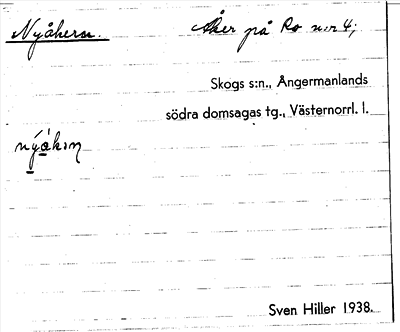 Nyåkern. Åker på Ro n:r 4;
Skogs s:n., Ångermanlands
södra domsagas tg., Västernorrl. l.
Sven Hiller 1938.